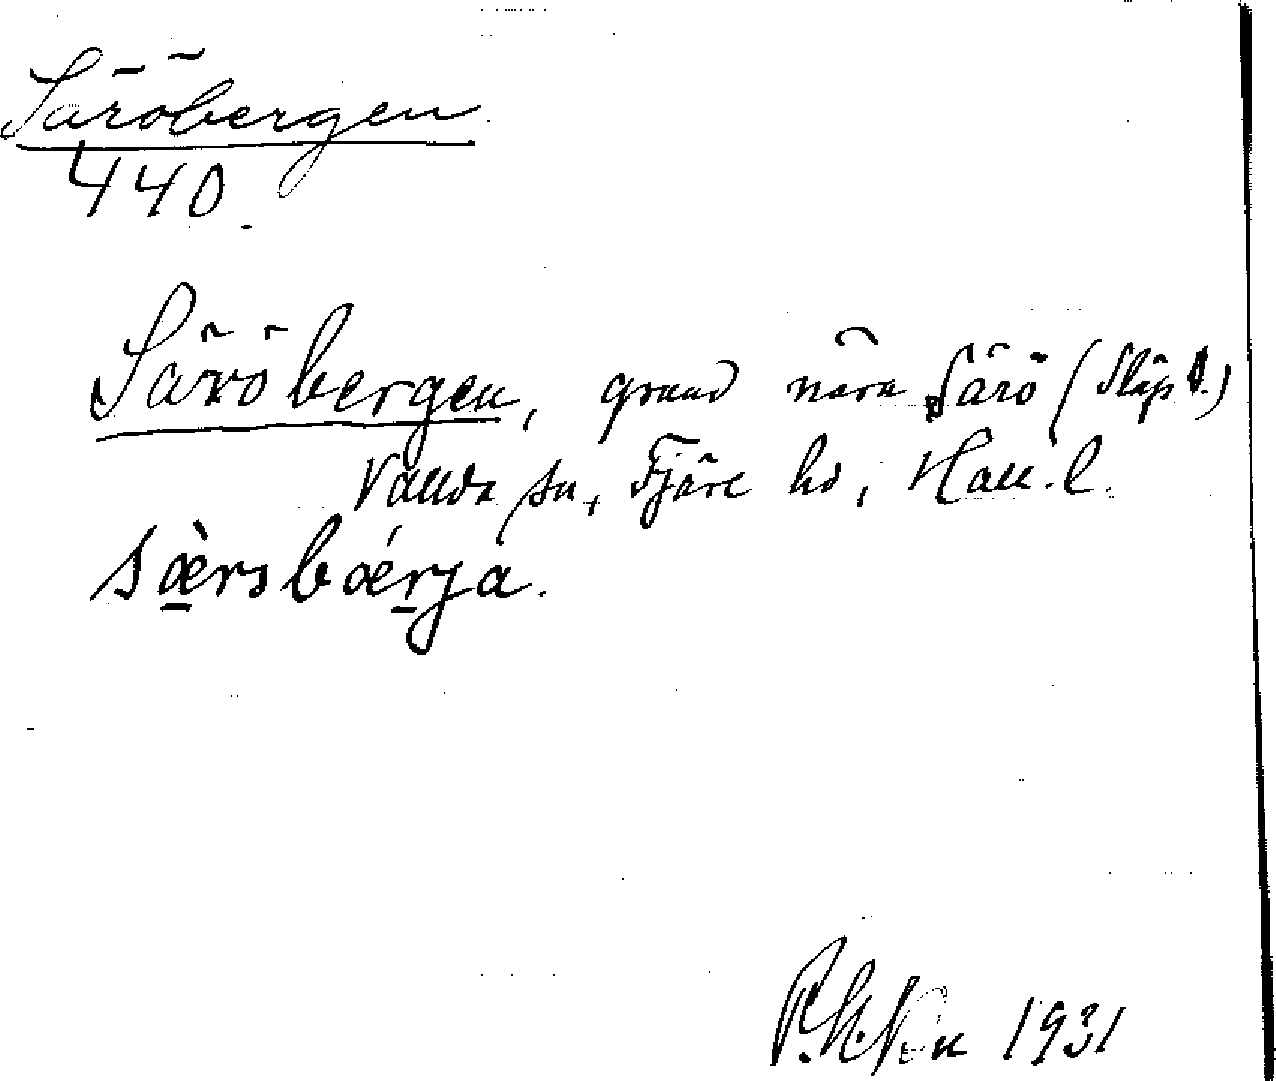 Säröbergen
440.
Säröbergen, grund nära Särö (Släp s.)
Vallda sn, Fjäre hd, Hall. l.
sæ̀rsbǽrja.
1931